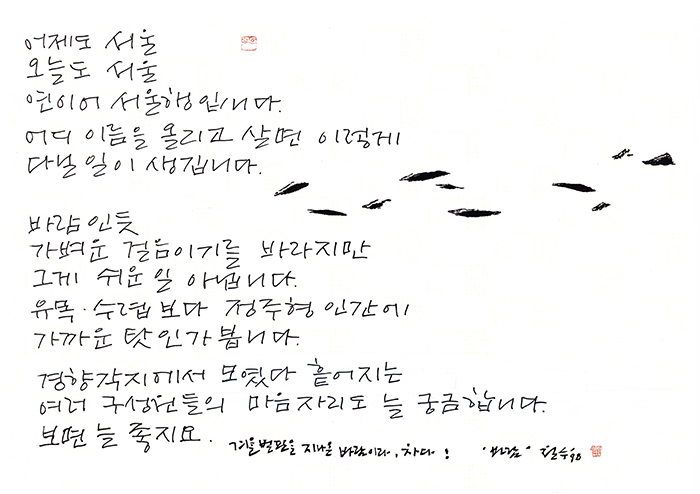 어제도 서울
오늘도 서울
연이어 서울행입니다.
어디 이름을 올리고 살면 이렇게
다닐 일이 생깁니다.
바람인듯
가벼운 걸음이기를 바라지만
그게 쉬운일 아닙니다.
유목·수렵보다 정주형 인간에
가까운 탓인가 봅니다.
경향각지에서 모였다 흩어지는
여러 구성원들의 마음자리도 늘 궁금합니다.
보면 늘 좋지요.
겨울벌판을 지나온 바람이라, 차다! "바람" 철수 98